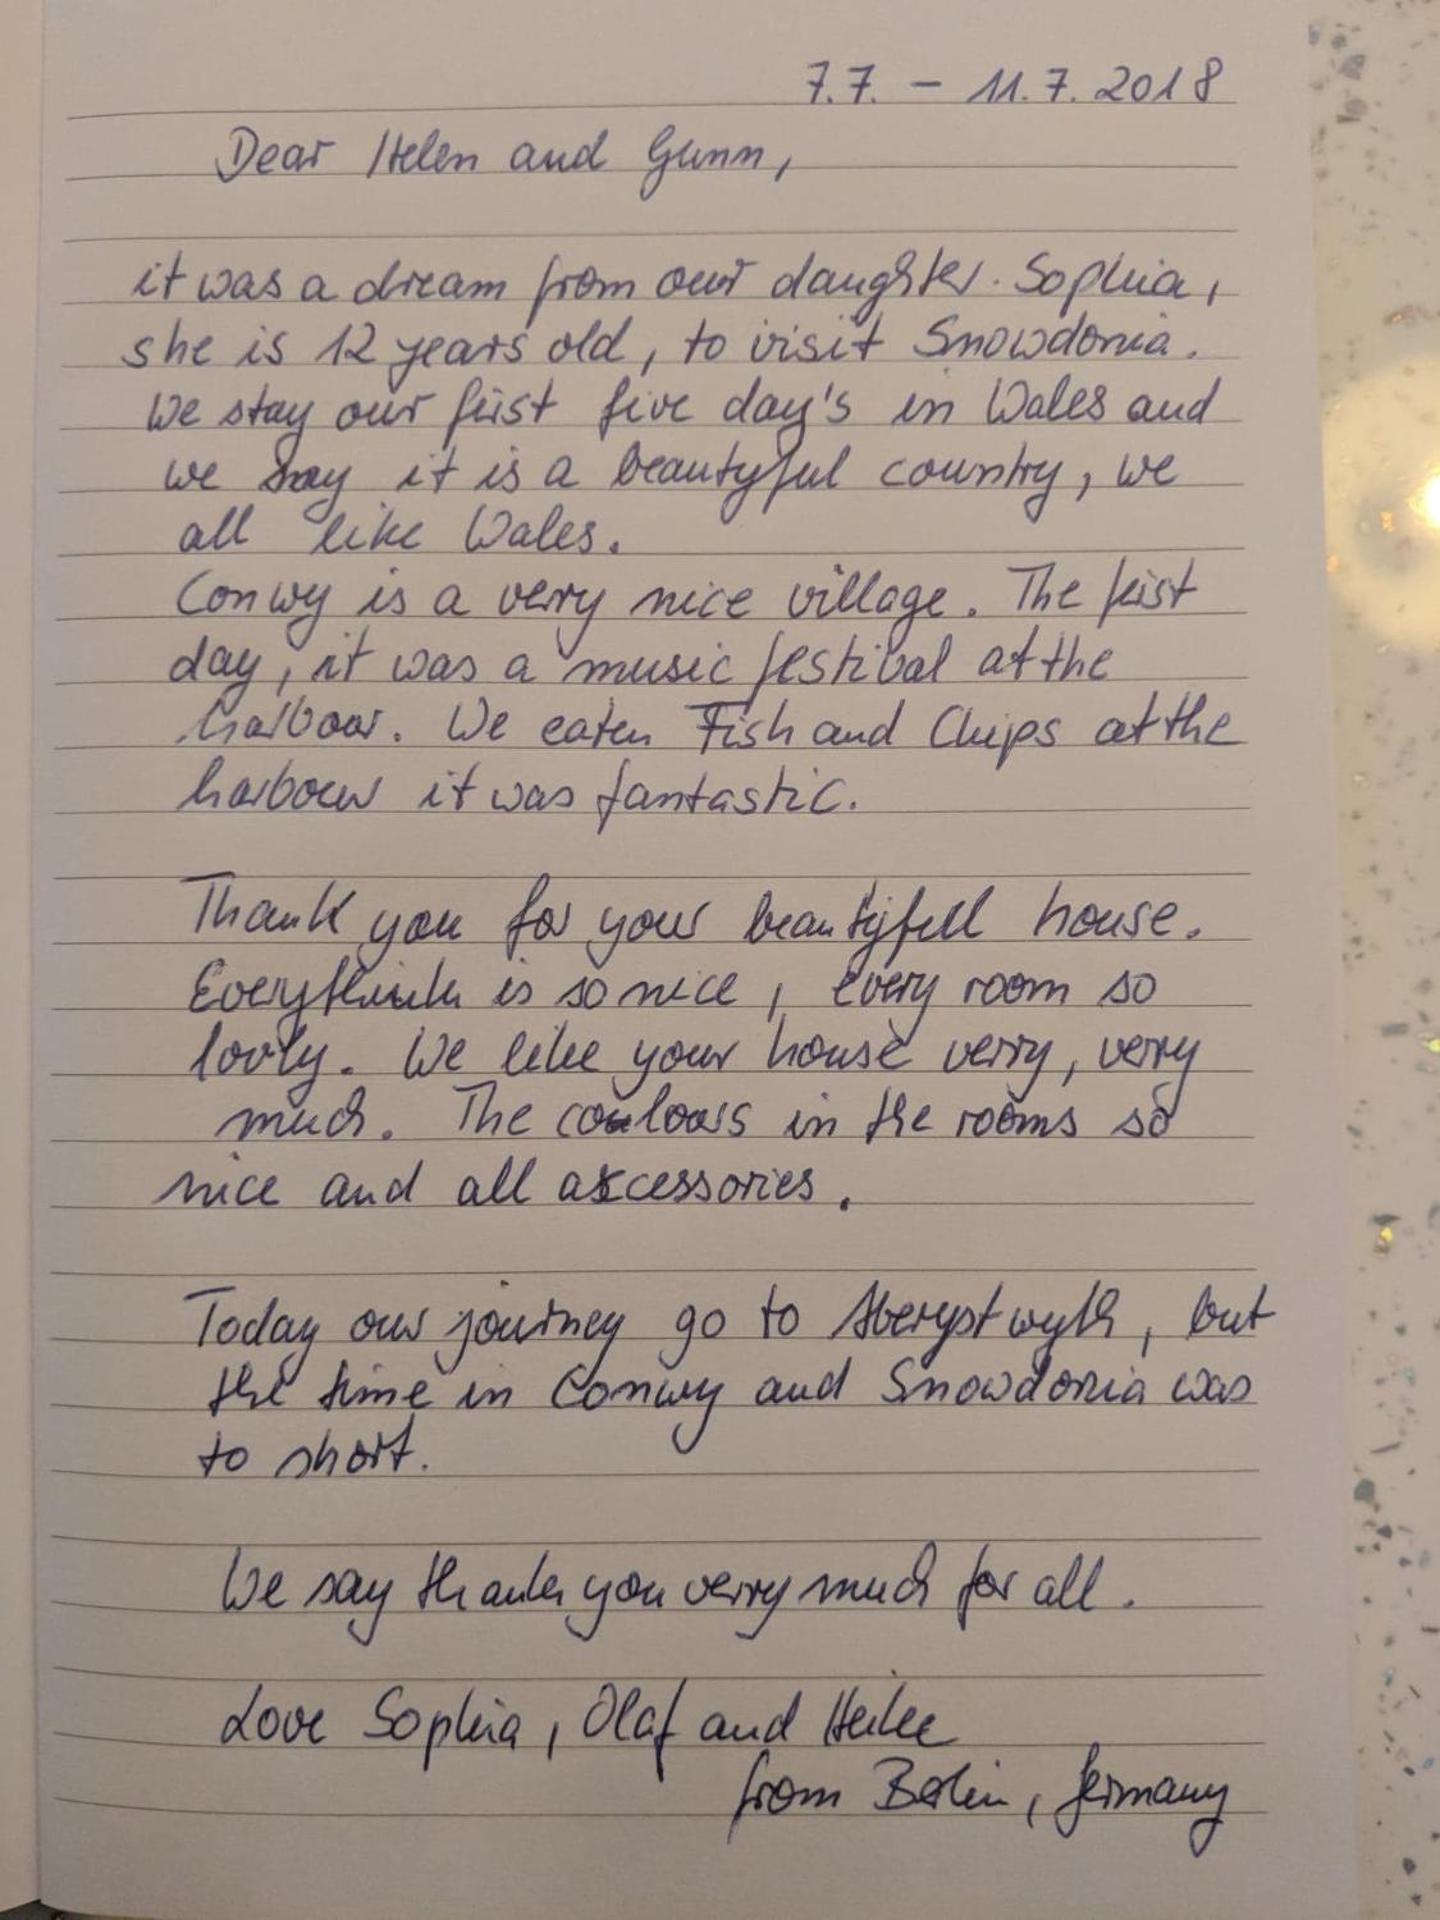 7.7. - 11.7.2018
Dear Helen and Gunn,
it was a dream from our daughter. Sophia,
she is 12 years old, to visit Snowdonia.
We stay our first five day's in Wales and
we say it is a beautyful country, we
all like Wales.
Conwy is a verry nice village. The first
day, it was a music festival at the
harbour. We eaten Fish and Chips at the
harbour it was fantastic.
Thank you for your beautyfull house.
Everythink is so nice, every room so
lovly. We like your house verry, verry
much. The coulours in the rooms so
nice and all accessories.
Today our journey go to Aberystwyth, but
the time in Conwy and Snowdonia was
to short.
We say thank you verry much for all.
Love Sophia, Olaf and Heike
from Berlin, Germany